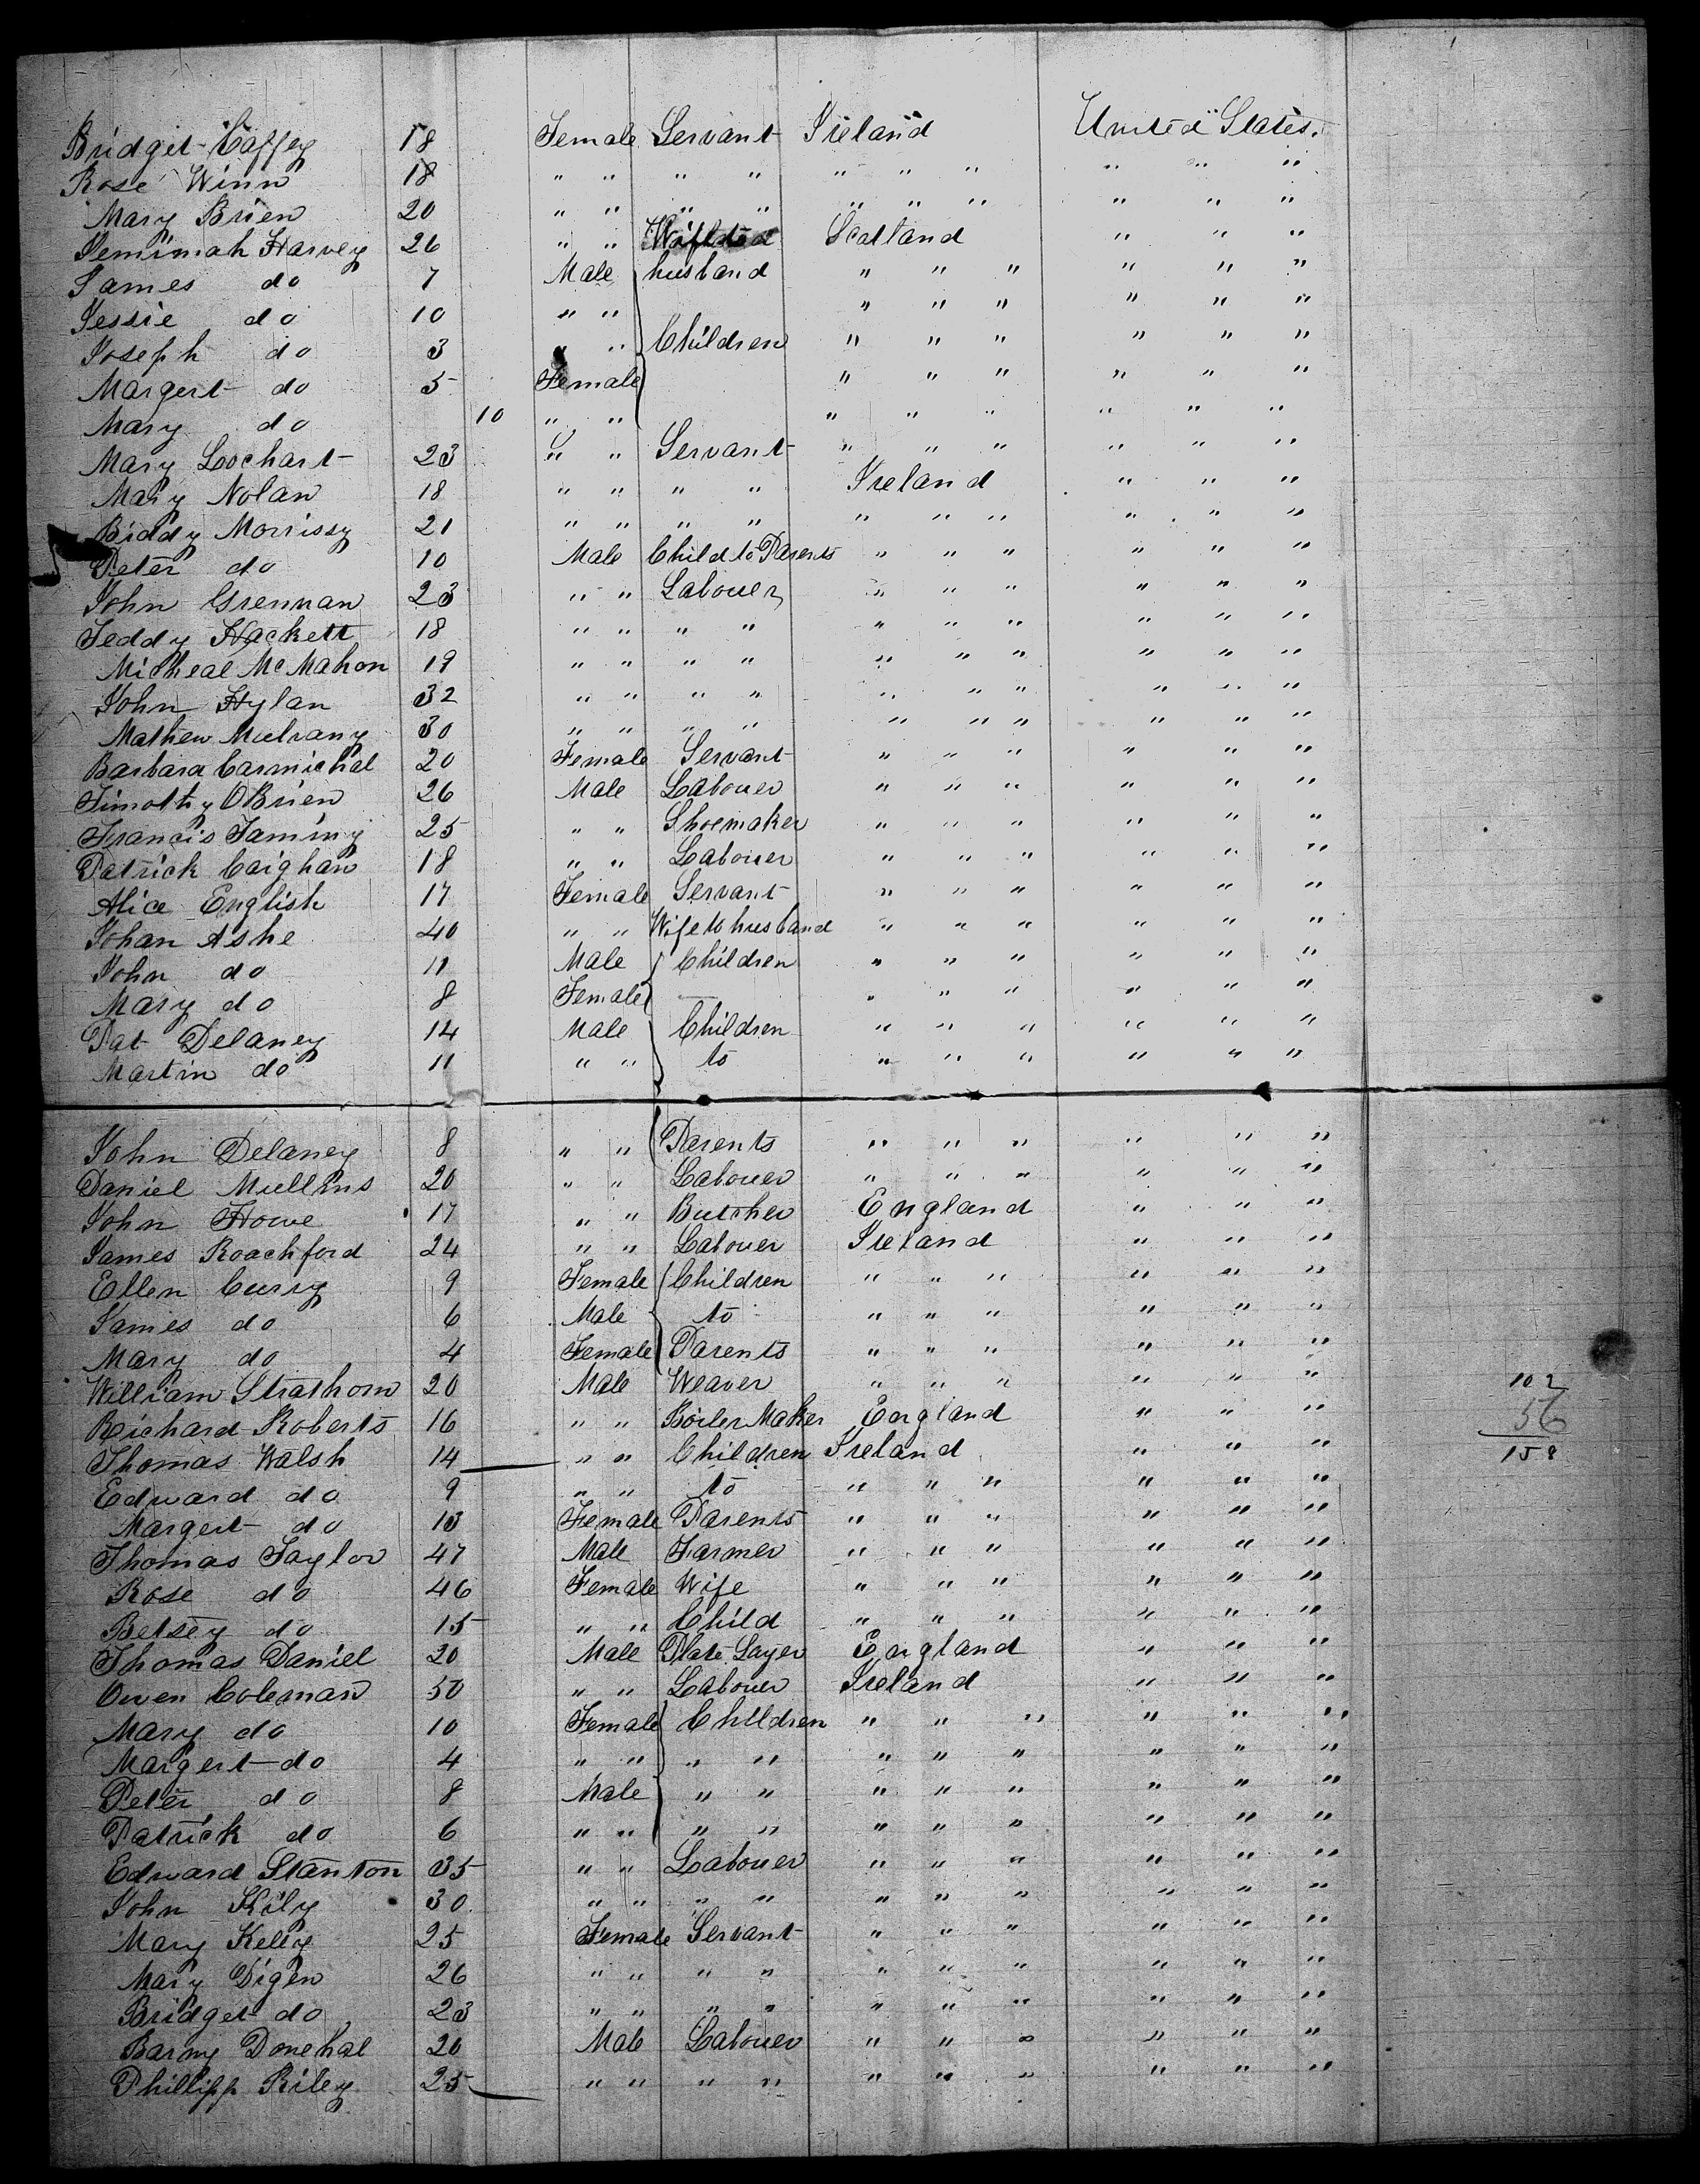 Bridget Caffey 18 Female Servant Ireland United States.
Rose Winn 18 " " " " " " " " " "
Mary Brien 20 " " " " " " " " " "
Jemimah Harvey 26 " " Wife to a Scotland " " "
James do 7 Male husband " " " " " "
Jessie do 10 " " " " " " " "
Joseph do 3 " " Children " " " " " "
Margert do 5 Female " " " " " "
Mary do 10 " " " " " " " "
Mary Lochart 23 " " Servant " " " " " "
Mary Nolan 18 " " " " Ireland " " "
Biddy Morrissy 21 " " " " " " " " " "
Peter do 10 Male Child to Parents " " " " " "
John Grennan 23 " " Labouer " " " " " "
Teddy Hackett 18 " " " " " " " " " "
Micheal McMahon 19 " " " " " " " " " "
John Hylan 32 " " " " " " " " " "
Mathew Mulrany 30 " " " " " " " " " "
Barbara Carmichal 20 Female Servant " " " " " "
Timothy OBrien 26 Male Labouer " " " " " "
Francis Taming 25 " " Shoemaker " " " " " "
Patrick Caighan 18 " " Labouer " " " " " "
Alice English 17 Female Servant " " " " " "
Johan Ashe 40 " " Wife to husband " " " " " "
John do 11 Male Children " " " " " "
Mary do 8 Female " " " " " "
Pat Delaney 14 Male Children " " " " " "
Martin do 11 " " to " " " " " "
John Delaney 8 " " Parents " " " " " "
Daniel Mullins 20 " " Labouer " " " " " "
John Howe 17 " " Butcher England " " "
James Roachford 24 " " Labouer Ireland " " "
Ellen Curry 9 Female Children " " " " " "
James do 6 Male to " " " " " "
Mary do 4 Female Parents " " " " " "
William Strathorn 20 Male Weaver " " " " " " 102
Richard Roberts 16 " " Boiler Maker England " " " 56
Thomas Walsh 14 " " Children Ireland " " " 158
Edward do 9 " " to " " " " " "
Margert do 13 Female Parents " " " " " "
Thomas Taylor 47 Male Farmer " " " " " "
Rose do 46 Female Wife " " " " " "
Betsey do 15 " " Child " " " " " "
Thomas Daniel 20 Male Plate Layer England " " "
Owen Coleman 50 " " Labouer Ireland " " "
Mary do 10 Female Children " " " " " "
Margert do 4 " " " " " " " " " "
Peter do 8 Male " " " " " " " "
Patrick do 6 " " " " " " " " " "
Edward Stanton 35 " " Labouer " " " " " "
John Kily 30 " " " " " " " " " "
Mary Kelly 25 Female Servant " " " " " "
Mary Digen 26 " " " " " " " " " "
Bridget do 23 " " " " " " " " " "
Barny Donehal 20 Male Labouer " " " " " "
Phillipp Riley 25 " " " " " " " " " "